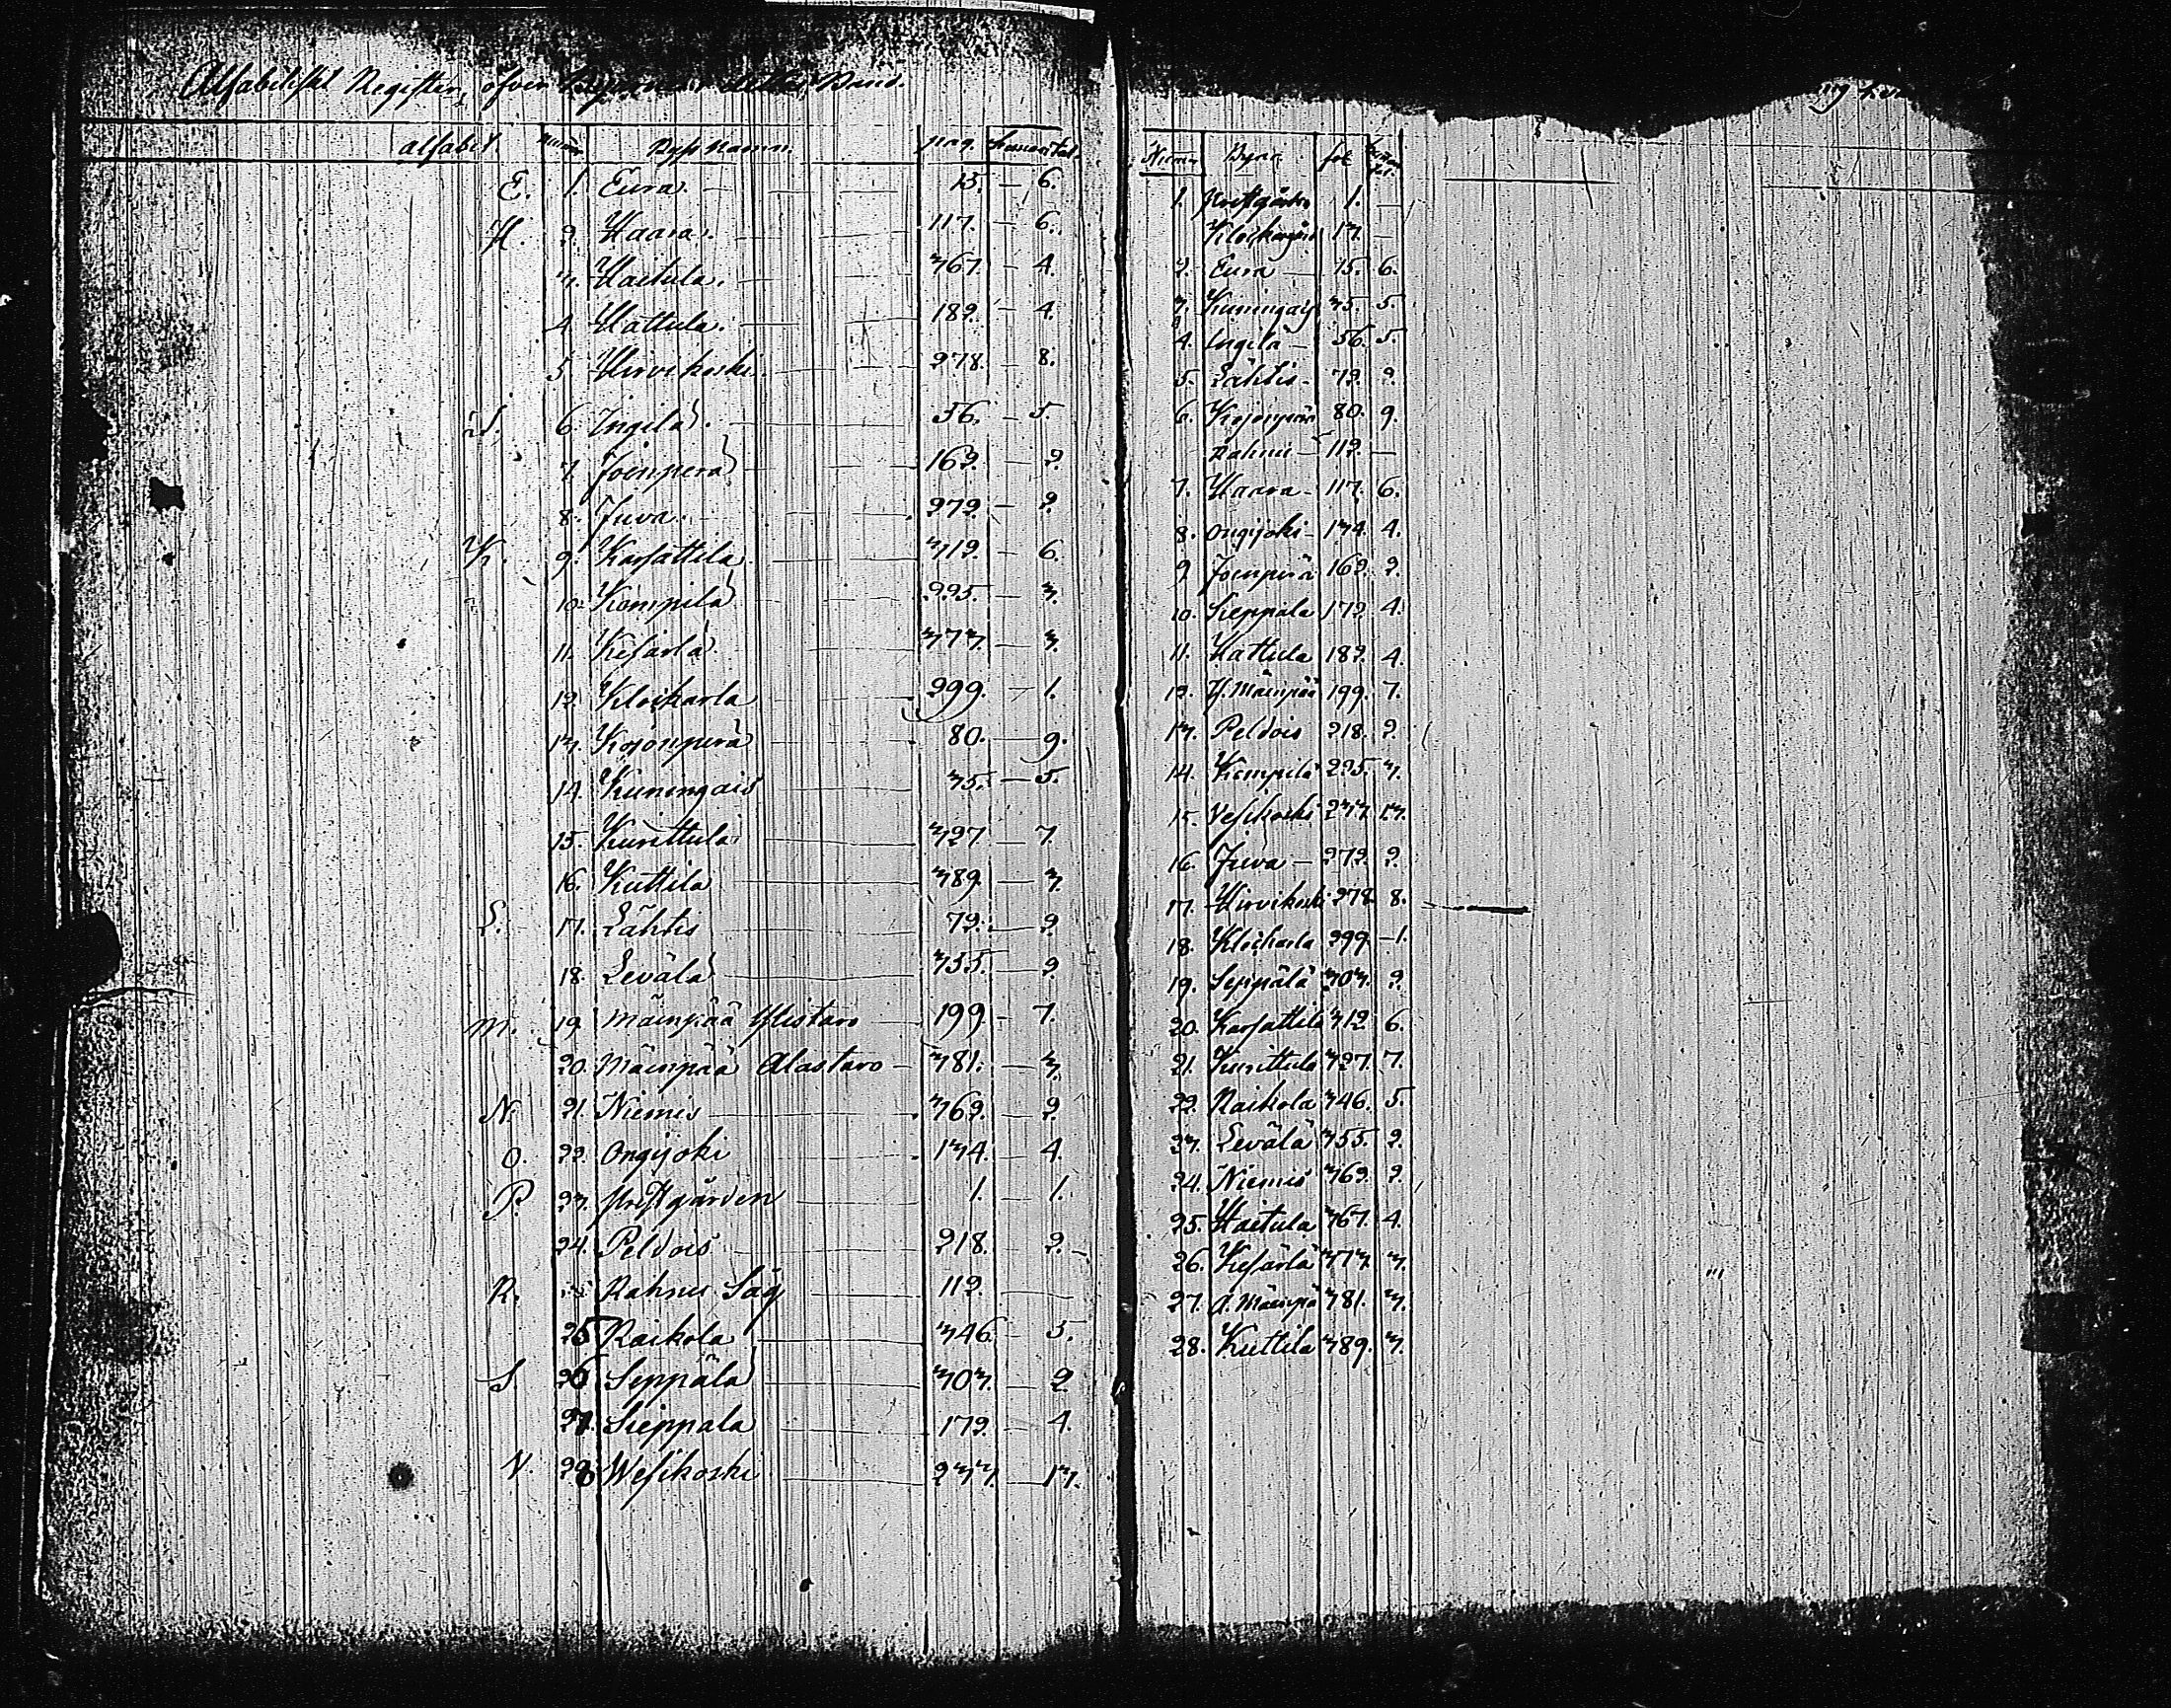 Alfabetiskt Register, öfver Byarne i detta Band.
alfabet Num. Bys Namn. pag. hemantal.
E. 1. Eura. 15. — 6.
H. 2. Haara. 117. — 6.
3. Haitula. 367. — 4.
4. Hattula. 182. — 4.
5. Hirvikoski. 278. — 8.
I. 6. Ingilä. 56. — 5.
7. Joenperä 162. — 2.
8. Juva. 272. — 2.
K. 9. Karsattila. 312. — 6.
10. Kempilä 225. — 3.
11. Kesärlä. 373. — 3.
12. Klockarla 299. — 1.
13. Kojonperä 80. — 9.
14. Kuningais 35. — 5.
15. Kunittula 327. — 7.
16. Kuttila 389. — 3.
L. 17. Lähtis 72. — 2.
18. Levälä 355. — 2.
M. 19. Mäenpää Ylistaro 199. — 7.
20. Mäenpää Alastaro 381. — 3.
N. 21. Niemis 362. — 2.
O. 22. Ongijoki 134. — 4.
P. 23. Prestgården 1. — 1.
24. Peldois 218. — 2.
R. Rahnu Såg 112.
25 Raikola 346. — 5.
S. 26 Seppälä 303. — 2
27. Sieppala 172. — 4.
V. 28 Wesikoski 233. — 13.
Num. Byar fol.
1. Prestgården 1. —
Klockargård 13. —
2. Eura — 15. 6.
3. Kuningais 35. 5.
4. Ingilä — 56. 5.
5. Lähtis — 72. 2.
6. Kojonperä 80. 9.
Rahnu — 112. —
7. Haara — 117. 6.
8. Ongijoki — 134. 4.
9. Joenperä 162. 2.
10. Sieppala 172. 4.
11. Hattula 182. 4.
12. Y. Mäenpää 199. 7.
13. Peldois 218. 2.
14. Kempilä 225. 3.
15. Vesikoski 233. 13.
16. Juva — 272. 2.
17. Hirvikoski 278. 8.
18. Klockarla 299. — 1.
19. Seppälä 303. 2.
20. Karsattila 312. 6.
21. Kunittula 327. 7.
22. Raikola 346. 5.
23. Levälä 355. 2.
24. Niemis 362. 2.
25. Haitula 367. 4.
26. Kesärlä 373. 3.
27. A. Mäenpä 381. 3.
28. Kuttila 389. 3.